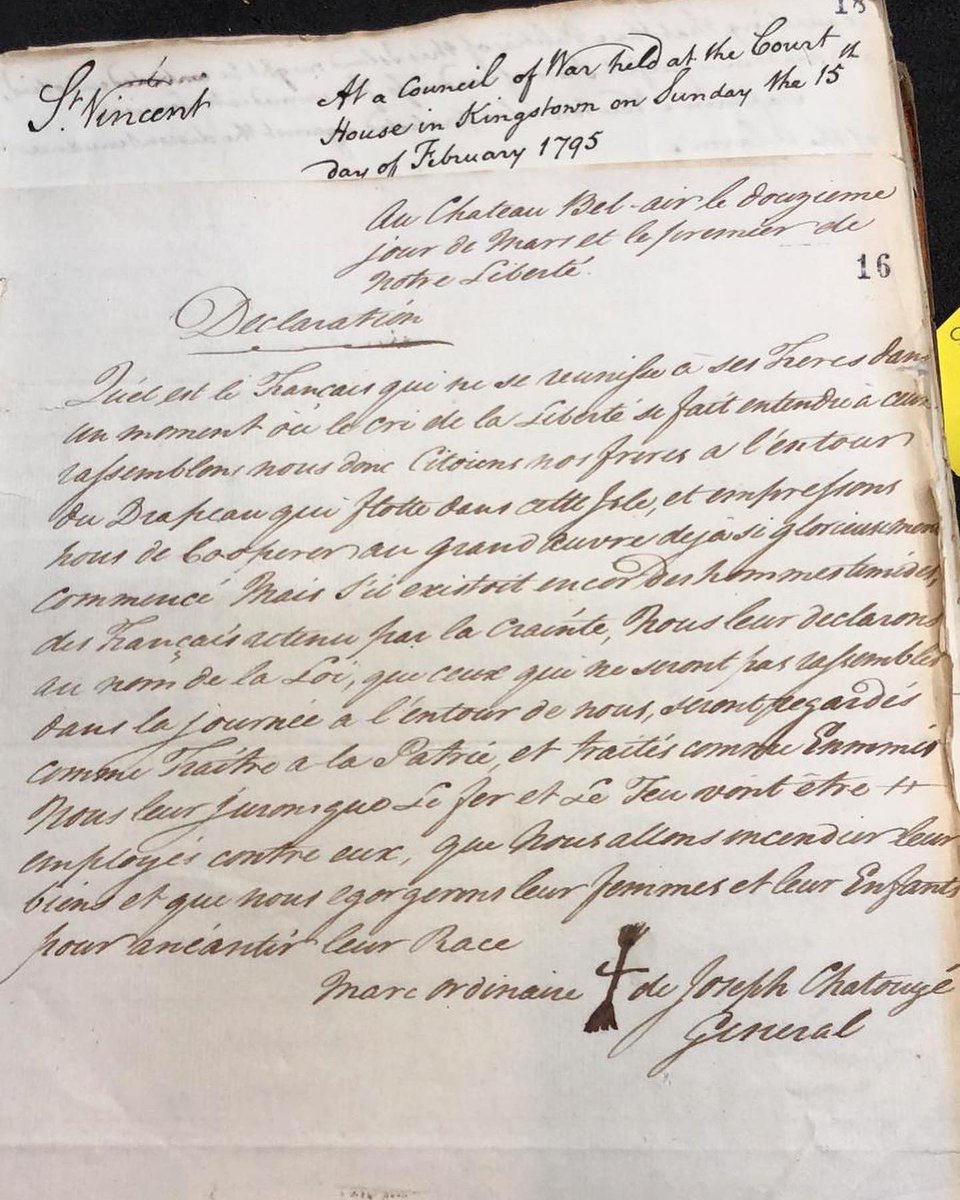 18
St. Vincent
At a Council of War held at the Court
House in Kingstown on Sunday the 15th
day of February 1795
Au Chateau Bel-air le douzieme
jour de Mars et le premier de
notre Liberté.
16
Declaration
Quel est le Français qui ne se reunisse à ses Freres dans
un moment où le cri de la Liberté se fait entendre à
rassemblons nous donc Citoiens nos freres a l'entour
du Drapeau qui flotte dans cette Isle, et empressons
nous de Cooperer au grand œuvre deja si glorieusement
commencé Mais s'il existoit encor des hommes timides,
des Français retenu par la crainte, Nous leur declarons
au nom de la Loi, que ceux qui ne seront pas rassemblés
dans la journée a l'entour de nous, seront regardés
comme Traître a la Patrie, et traités comme Ennmis
Nous leur jurons que Le fer et Le Feu vont être
employés contre eux, que Nous allons incendier leur
biens et que nous egorgerons leur femmes et leur Enfants
pour anéantir leur Race
Marc ordinaire de Joseph Chatouyé
General